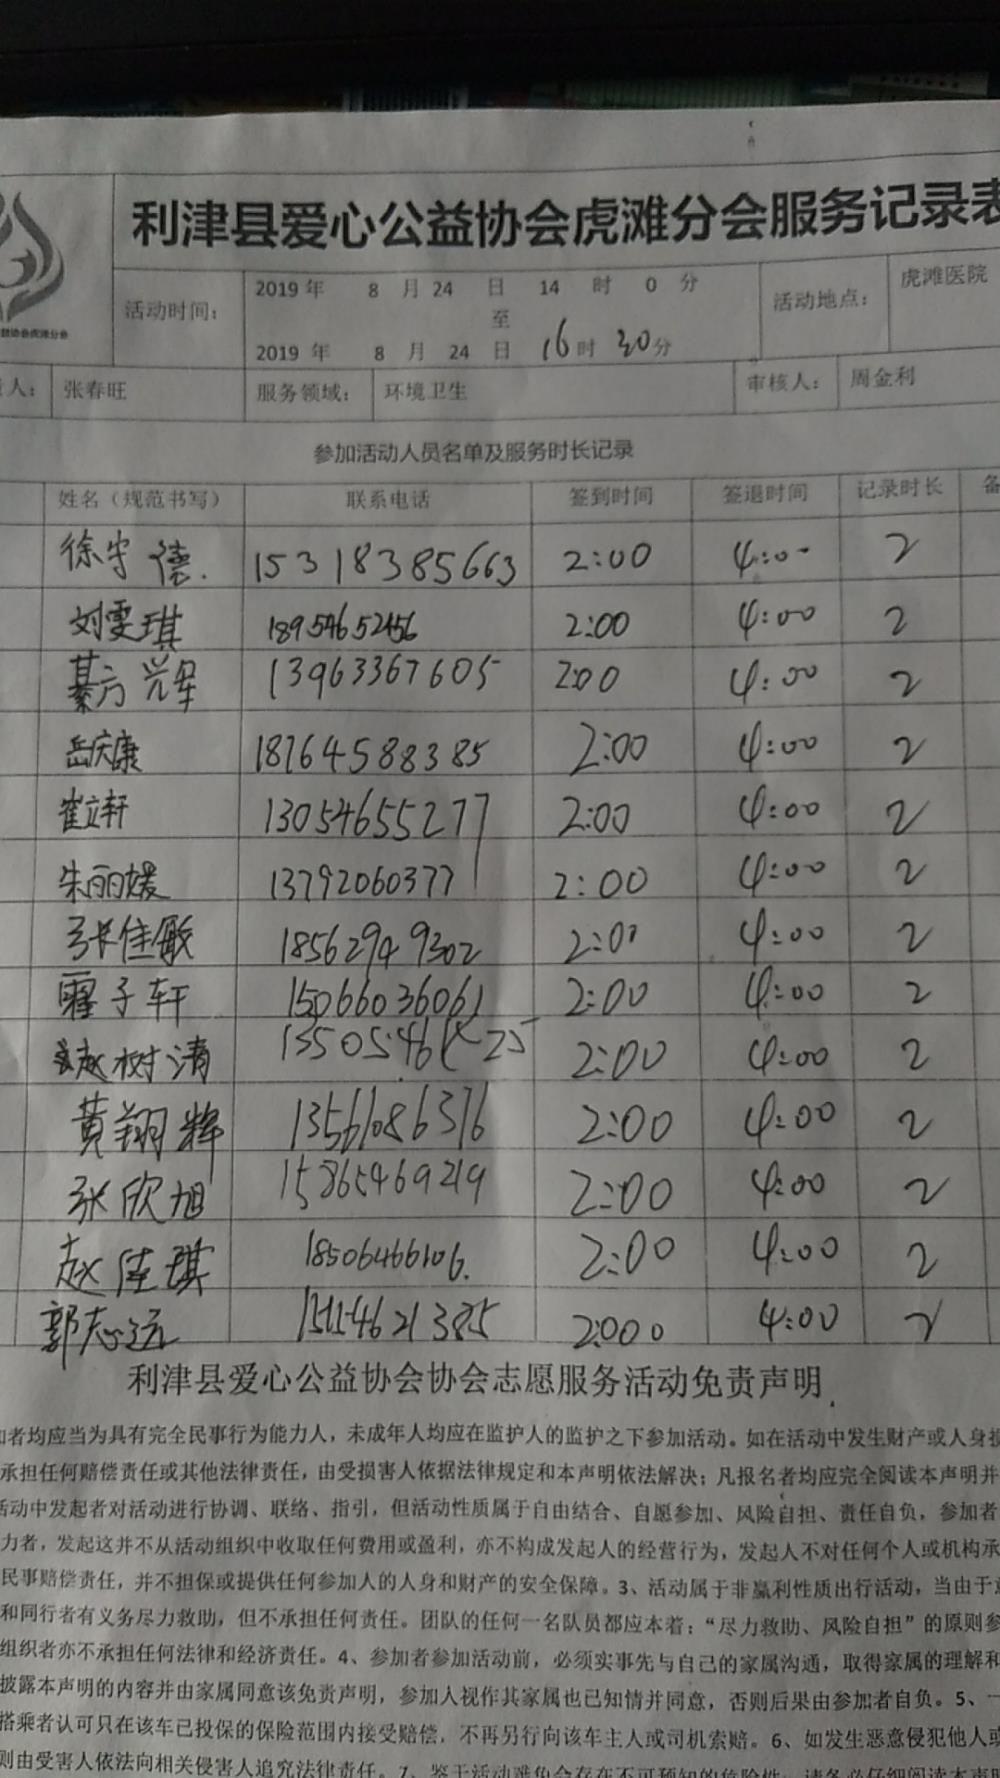 利津县爱心公益协会虎滩分会服务记录表
活动时间： 2019年 8月24日 14时0分 至 2019年 8月24日 16时30分 活动地点： 虎滩医院
协会虎滩分会
人： 张春旺 服务领域： 环境卫生 审核人： 周金利
参加活动人员名单及服务时长记录
姓名（规范书写） 联系电话 签到时间 签退时间 记录时长 备
徐守德. 15318385663 2:00 4:00 2
刘雯琪 18954652456 2:00 4:00 2
綦方兴军 13963367605 2:00 4:00 2
岳庆康 18764588385 2:00 4:00 2
崔立轩 13054655277 2:00 4:00 2
朱丽媛 13792060377 2:00 4:00 2
张佳敏 18562949302 2:00 4:00 2
霍子轩 15066036061 2:00 4:00 2
赵树清 2:00 4:00 2
黄翔辉 13561086376 2:00 4:00 2
张欣旭 15865469219 2:00 4:00 2
赵佳琪 18506466106. 2:00 4:00 2
郭志远 2:000 4:00 2
利津县爱心公益协会协会志愿服务活动免责声明
加者均应当为具有完全民事行为能力人，未成年人均应在监护人的监护之下参加活动。如在活动中发生财产或人身损
承担任何赔偿责任或其他法律责任，由受损害人依据法律规定和本声明依法解决；凡报名者均应完全阅读本声明并
活动中发起者对活动进行协调、联络、指引，但活动性质属于自由结合、自愿参加、风险自担、责任自负，参加者
力者，发起这并不从活动组织中收取任何费用或盈利，亦不构成发起人的经营行为，发起人不对任何个人或机构承
民事赔偿责任，并不担保或提供任何参加人的人身和财产的安全保障。3、活动属于非赢利性质出行活动，当由于意
和同行者有义务尽力救助，但不承担任何责任。团队的任何一名队员都应本着：“尽力救助、风险自担”的原则参
组织者亦不承担任何法律和经济责任。4、参加者参加活动前，必须实事先与自己的家属沟通，取得家属的理解和
披露本声明的内容并由家属同意该免责声明，参加人视作其家属也已知情并同意，否则后果由参加者自负。5、一
搭乘者认可只在该车已投保的保险范围内接受赔偿，不再另行向该车主人或司机索赔。6、如发生恶意侵犯他人或
则由受害人依法向相关侵害人追究法律责任。7、鉴于活动难免会存在不可预知的危险性，请务必仔细阅读本声明